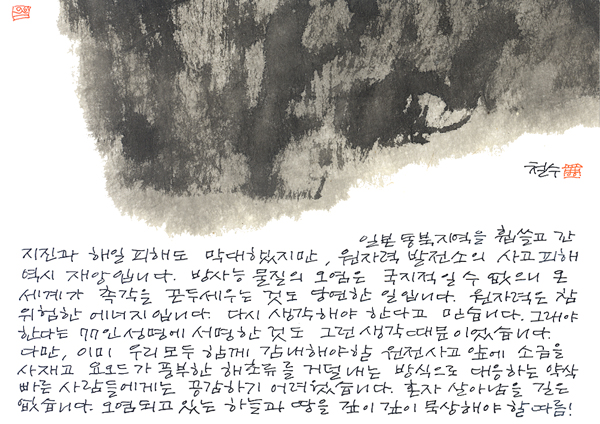 철수
일본 동북지역을 휩쓸고 간
지진과 해일 피해도 막대했지만, 원자력 발전소의 사고피해
역시 재앙입니다. 방사능 물질의 오염은 국지적일 수 없으니 온
세계가 촉각을 곤두세우는 것도 당연한 일입니다. 원자력도 참
위험한 에너지입니다. 다시 생각해야 한다고 믿습니다. 그래야
한다는 77인 성명에 서명한 것도 그런 생각 때문이었습니다.
다만, 이미 우리 모두 함께 감내해야할 원전사고 앞에 소금을
사재고 요오드가 풍부한 해조류를 거덜내는 방식으로 대응하는 약삭
빠른 사람들에게는 공감하기 어려웠습니다. 혼자 살아남을 길은
없습니다. 오염되고 있는 하늘과 땅을 깊이 깊이 묵상해야 할 따름!